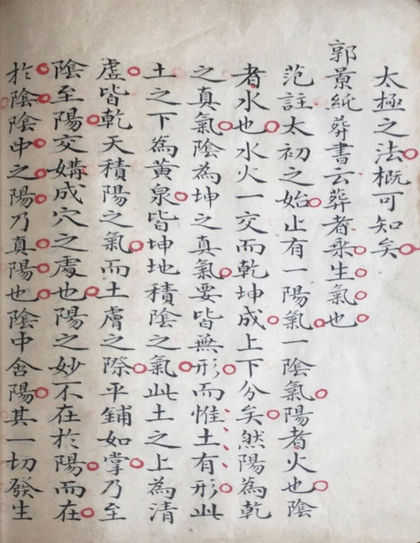 太極之法概可知矣
郭景純葬書云葬者乘生氣也
范註太初之始止有一陽氣一陰氣陽者火也陰
者水也水火一交而乾坤成上下分矣然陽為乾
之真氣陰為坤之真氣要皆無形而惟土有形此
土之下為黃泉皆坤地積陰之氣此土之上為清
虛皆乾天積陽之氣而土膚之際平鋪如掌乃至
陰至陽交媾成穴之處也陽之妙不在於陽而在
於陰陰中之陽乃真陽也陰中含陽其一切發生